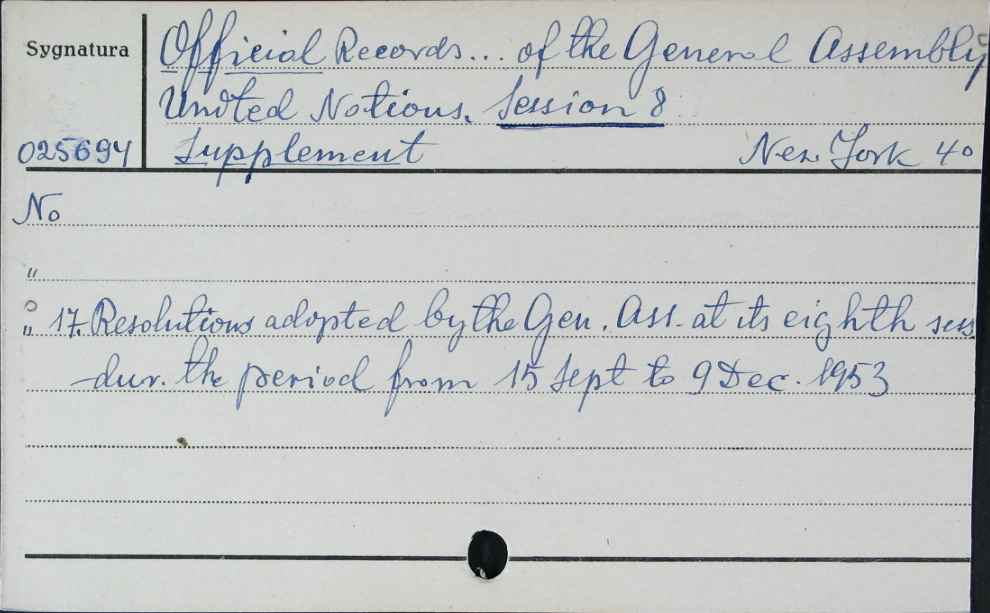 Sygnatura
Official Records... of the General Assembly
United Nations. Session 8
025694 Supplement New York 4o
No
"
" 17. Resolutions adopted by the Gen. Ass. at its eighth sess
dur. the period from 15 Sept to 9 Dec. 1953